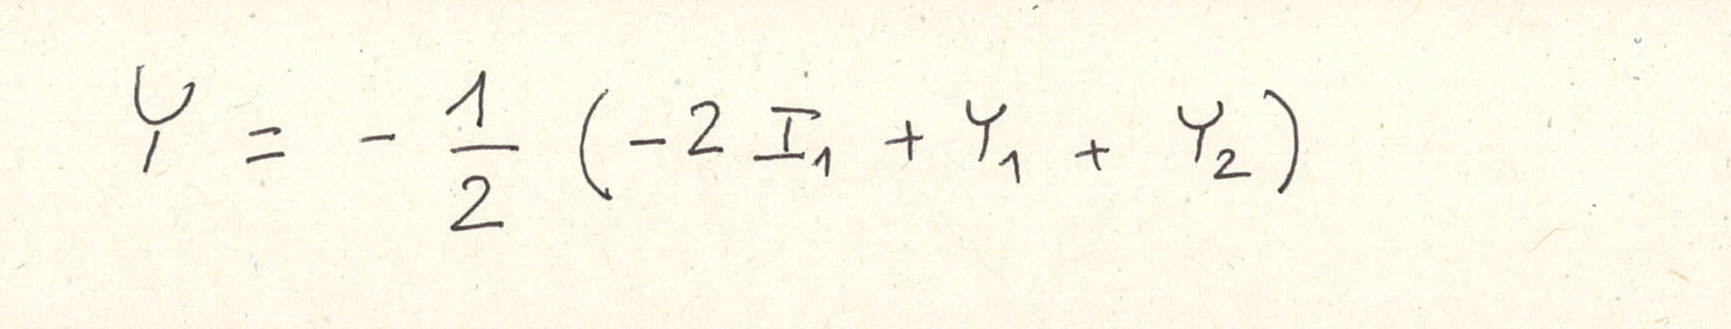 Y = - \frac{1}{2} (-2 I_1 + Y_1 + Y_2)